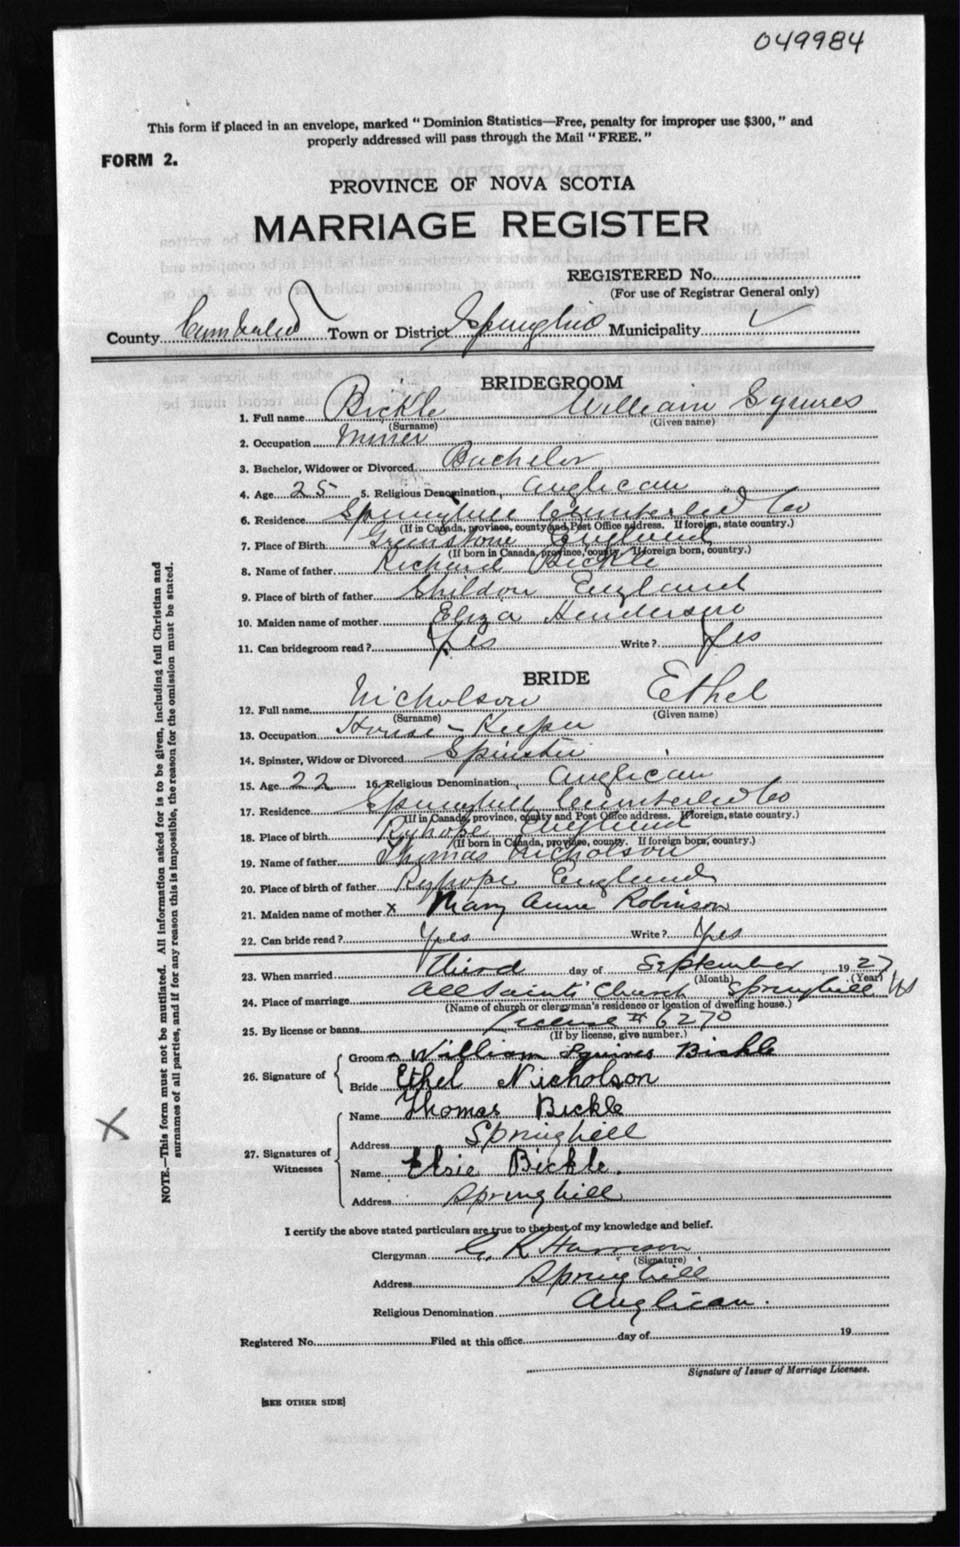 049984
This form if placed in an envelope, marked "Dominion Statistics—Free, penalty for improper use $300," and
properly addressed will pass through the Mail "FREE."
FORM 2.
PROVINCE OF NOVA SCOTIA
MARRIAGE REGISTER
REGISTERED No.
(For use of Registrar General only)
County Cumberland Town or District Springhill Municipality
BRIDEGROOM
1. Full name Bickle William Squires
(Surname) (Given name)
2. Occupation Miner
3. Bachelor, Widower or Divorced Bachelor
4. Age 25 5. Religious Denomination Anglican
6. Residence Springhill Cumberland Co
(If in Canada, province, county and Post Office address. If foreign, state country.)
7. Place of Birth England
(If born in Canada, province, county. If foreign born, country.)
8. Name of father Richard Bickle
9. Place of birth of father Shildon England
10. Maiden name of mother Eliza Henderson
11. Can bridegroom read? Yes Write? Yes
BRIDE
12. Full name Nicholson Ethel
(Surname) (Given name)
13. Occupation House-Keeper
14. Spinster, Widow or Divorced Spinster
15. Age 22 16. Religious Denomination Anglican
17. Residence Springhill Cumberland Co
(If in Canada, province, county and Post Office address. If foreign, state country.)
18. Place of birth Ryhope England
(If born in Canada, province, county. If foreign born, country.)
19. Name of father Thomas Nicholson
20. Place of birth of father Ryhope England
21. Maiden name of mother x Mary Anne Robinson
22. Can bride read? Yes Write? Yes
23. When married Third day of September 1927
(Month) (Year)
24. Place of marriage All Saints' Church Springhill NS
(Name of church or clergyman's residence or location of dwelling house.)
25. By license or banns License # 6270
(If by license, give number.)
26. Signature of Groom William Squires Bickle
Bride Ethel Nicholson
27. Signatures of Witnesses Name Thomas Bickle
Address Springhill
Name Elsie Bickle.
Address Springhill
I certify the above stated particulars are true to the best of my knowledge and belief.
Clergyman G K Harrison
(Signature)
Address Springhill
Religious Denomination Anglican.
Registered No. Filed at this office day of 19
Signature of Issuer of Marriage Licenses.
[SEE OTHER SIDE]
NOTE.—This form must not be mutilated. All information asked for is to be given, including full Christian and
surnames of all parties, and if for any reason this is impossible, the reason for the omission must be stated.
X